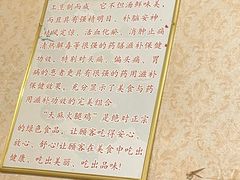 工烹制而成。它不但汤鲜味美,
而且具有强精明目、补脑安神、
风定惊、活血化瘀、消肿止痛
清热解毒等很强的药膳滋补保健
功效。特别对头痛、偏头痛、胃
病的患者更具有很强的药用滋补
保健效果。充分显示了美食与药
用滋补功效的完美组合。
“天麻火腿鸡”是绝对正宗
的绿色食品。让顾客吃得安心、
放心、舒心!让顾客在美食中吃出
健康、吃出美丽、吃出品味!